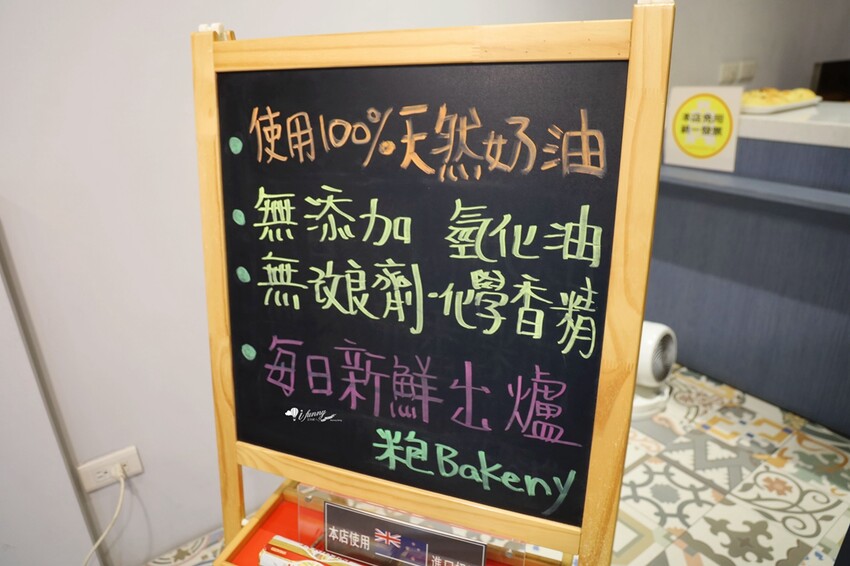 使用100%天然奶油
無添加 氫化油
無改良劑·化學香精
每日新鮮出爐
i funny
粨Bakeny
本店使用
進口
本店免用
統一發票